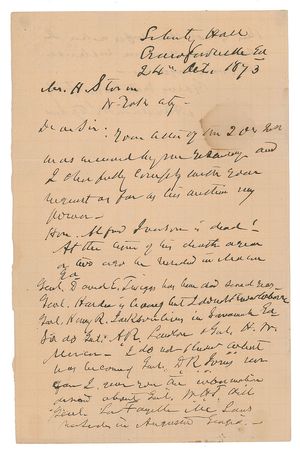 Liberty Hall
Crawfordville Ga
24th Oct. 1873
Mr. H Storm
N. York city.
Dear Sir: Your letter of the
was received by me and
I cheerfully comply with your
request as far as is within my
power—
Hon. Alfred Iverson is dead!
At the time of his death a year
or two ago he resided in Macon
Ga
Genl. David E. Twiggs has been dead
Genl. Hardee is but I do not know where
Genl. Henry R. Jackson lives in Savannah Ga
So do Genl. A R. Lawton & Genl. H. W.
Mercer— I do not know what
has become of Genl. D R Jones nor
can I give you the information
desired about Genl. W H T. Walker
Genl. La Fayette McLaws
resides in Augusta Georgia—